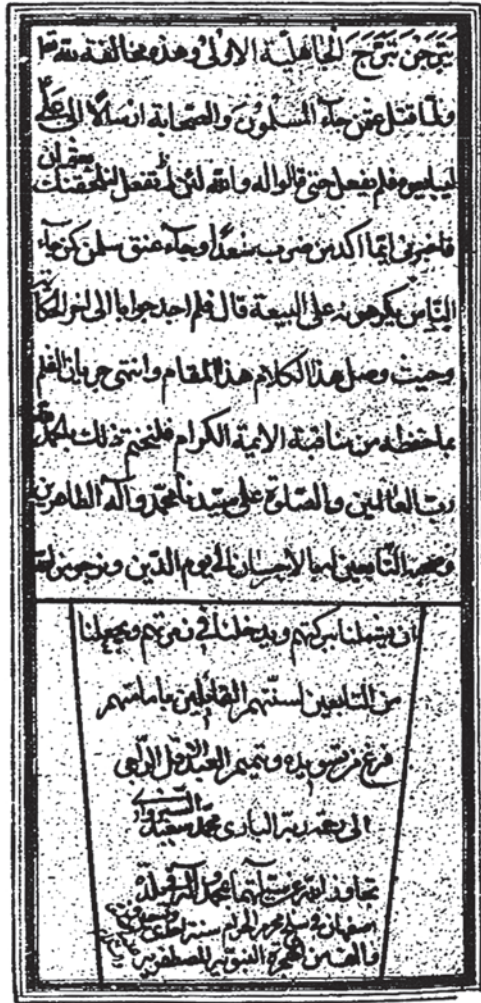 تبرجن تبرج الجاهلية الاولى وهذه مخالفة لله
ولما قتل عثمن جاء المسلمون والصحابة ارسالا الى علي
ليبايعوه فلم يفعل حتى قالوا له والله لئن لم تفعل لنلحقنك بعثمان
فاخبرني ايما اكد من ضرب سعدا وجاء عنق سلمن كمن جاء
الناس يكرهونه على البيعة قال فلم احد جوابا الى اخر الحكاية
وحيث وصل هذا الكلام هذا المقام وانتهى جريان القلم
بما حفظه من مناقبة الائمة الكرام فلنختم ذلك بالحمد لله
رب العالمين والصلوة على سيدنا محمد وآله الطاهرين
وصحبه التابعين لهم بالاحسان الى يوم الدين ونرجو من الله
ان يشملنا ببركتهم ويدخلنا في زمرتهم ويجعلنا
من التابعين لسنتهم القائلين بامامتهم
فرغ من تسويده وتتميم العبد الاقل الراجي
الى رحمة ربه البارى محمد سعيد
تجاوز الله عن سيآتهما بمحمد وآله في بلدة
اصفهان في سلخ محرم الحرام سنة احدى
والف من الهجرة النبوية المصطفوية